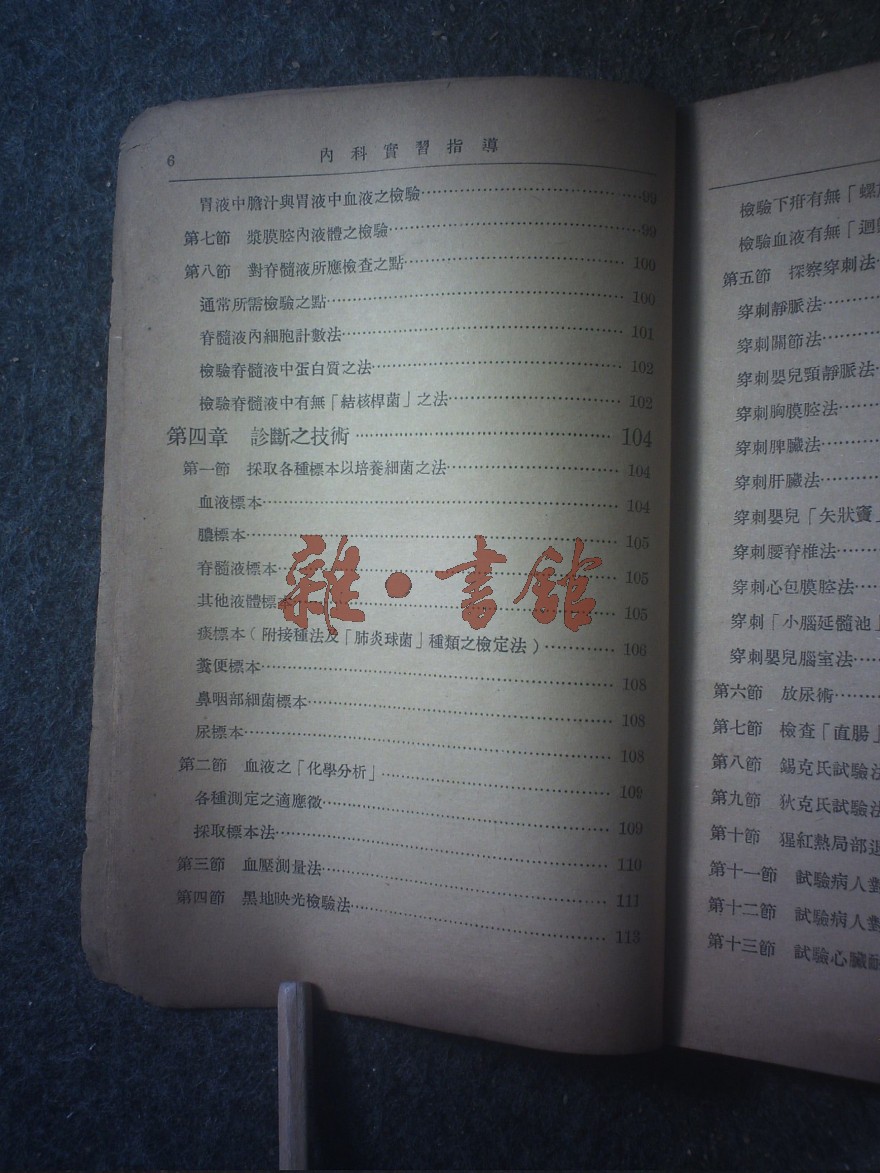 6
內科實習指導
胃液中膽汁與胃液中血液之檢驗……99
第七節 漿膜腔內液體之檢驗……99
第八節 對脊髓液所應檢查之點……100
通常所需檢驗之點……100
脊髓液內細胞計數法……101
檢驗脊髓液中蛋白質之法……102
檢驗脊髓液中有無「結核桿菌」之法……102
第四章 診斷之技術……104
第一節 採取各種標本以培養細菌之法……104
血液標本……104
膿標本……105
脊髓液標本……105
其他液體標本……105
痰標本(附接種法及「肺炎球菌」種類之檢定法)……106
糞便標本……108
鼻咽部細菌標本……108
尿標本……108
第二節 血液之「化學分析」……109
各種測定之適應徵……109
採取標本法……110
第三節 血壓測量法……111
第四節 黑地映光檢驗法……113
雜·書館
檢驗下疳有無「螺
檢驗血液有無「迴
第五節 探察穿刺法
穿刺靜脈法……
穿刺關節法……
穿刺嬰兒頸靜脈法
穿刺胸膜腔法……
穿刺脾臟法……
穿刺肝臟法……
穿刺嬰兒「矢狀竇」
穿刺腰脊椎法……
穿刺心包膜腔法……
穿刺「小腦延髓池」
穿刺嬰兒腦室法……
第六節 放尿術……
第七節 檢查「直腸」
第八節 錫克氏試驗法
第九節 狄克氏試驗法
第十節 猩紅熱局部退
第十一節 試驗病人對
第十二節 試驗病人對
第十三節 試驗心臟